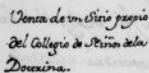 Venta de vn Sitio propio
del Collegio de Niños de la
Doctrina.